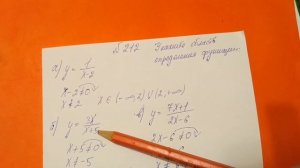 № 212 Знайти область
визначення функции.
а) y = 1/(x-2)
x-2≠0
x≠2 x∈(-∞;2)∪(2;∞)
б) y = 3x/(x+5) в) y = (7x+1)/(2x-6)
x+5≠0 2x-6≠0
x≠-5